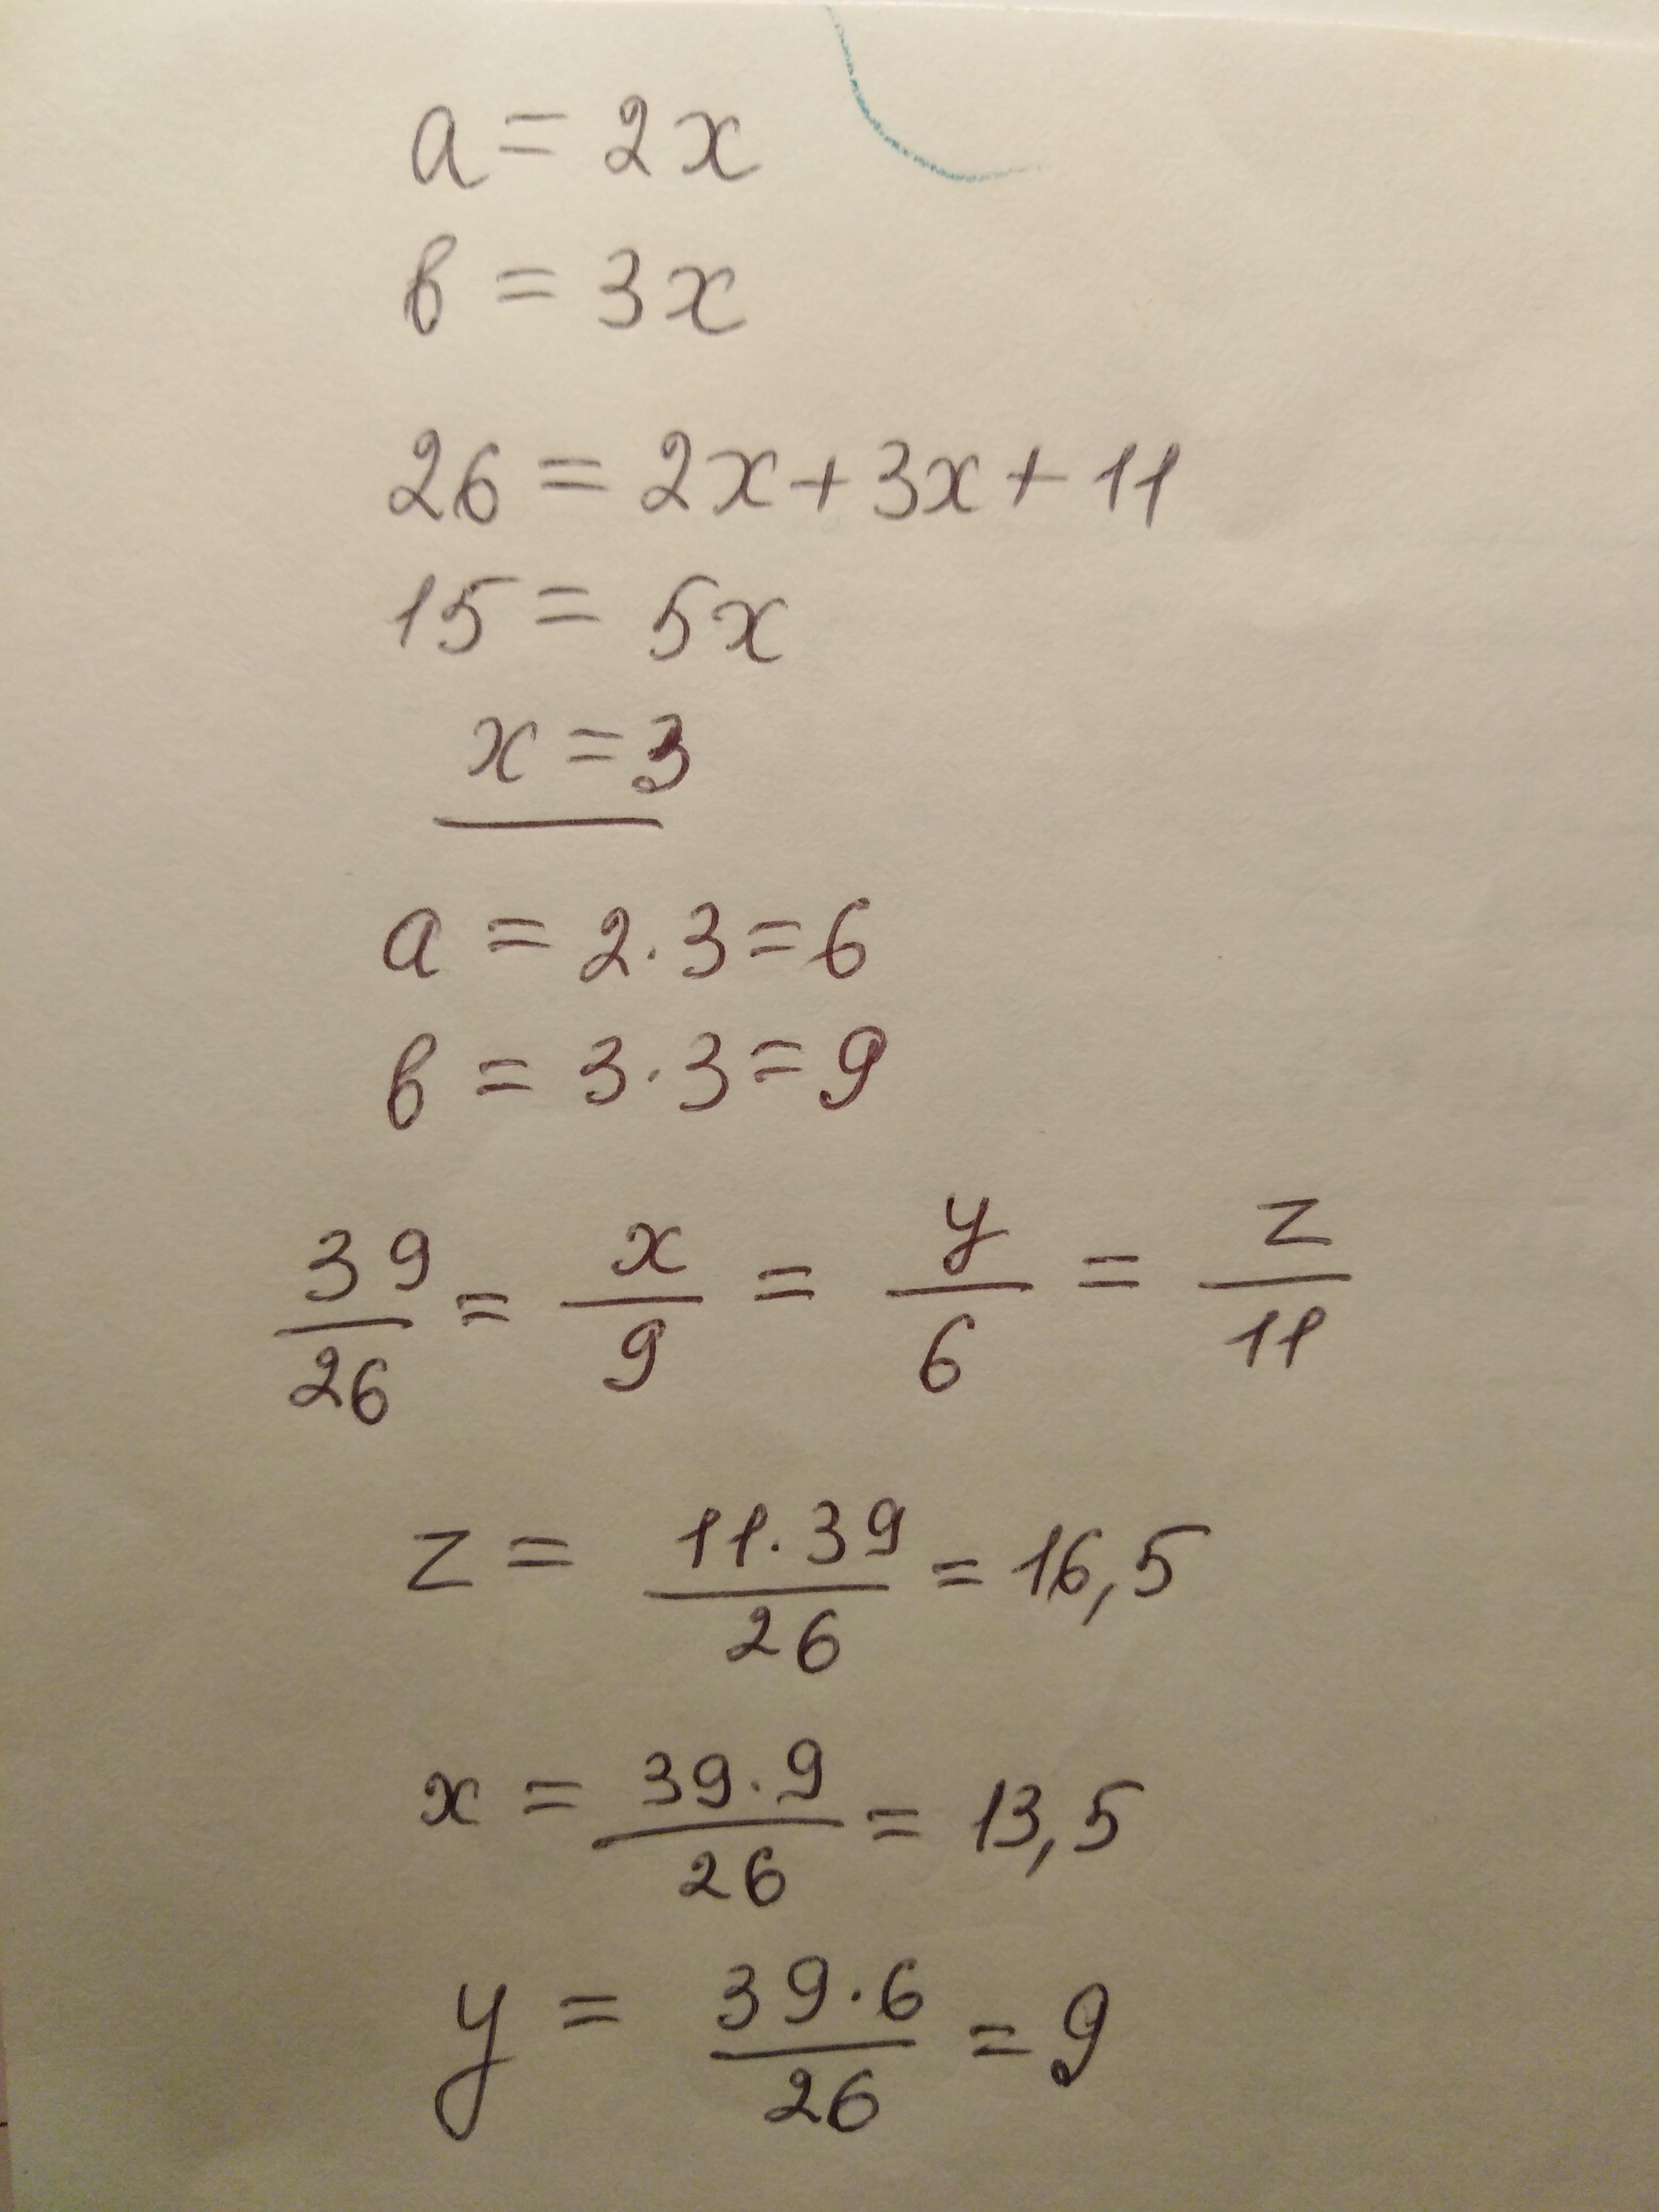 a = 2x
в = 3x
26 = 2x + 3x + 11
15 = 5x
x = 3
a = 2 · 3 = 6
в = 3 · 3 = 9
39/26 = x/9 = y/6 = z/11
z = 11 · 39/26 = 16,5
x = 39 · 9/26 = 13,5
y = 39 · 6/26 = 9